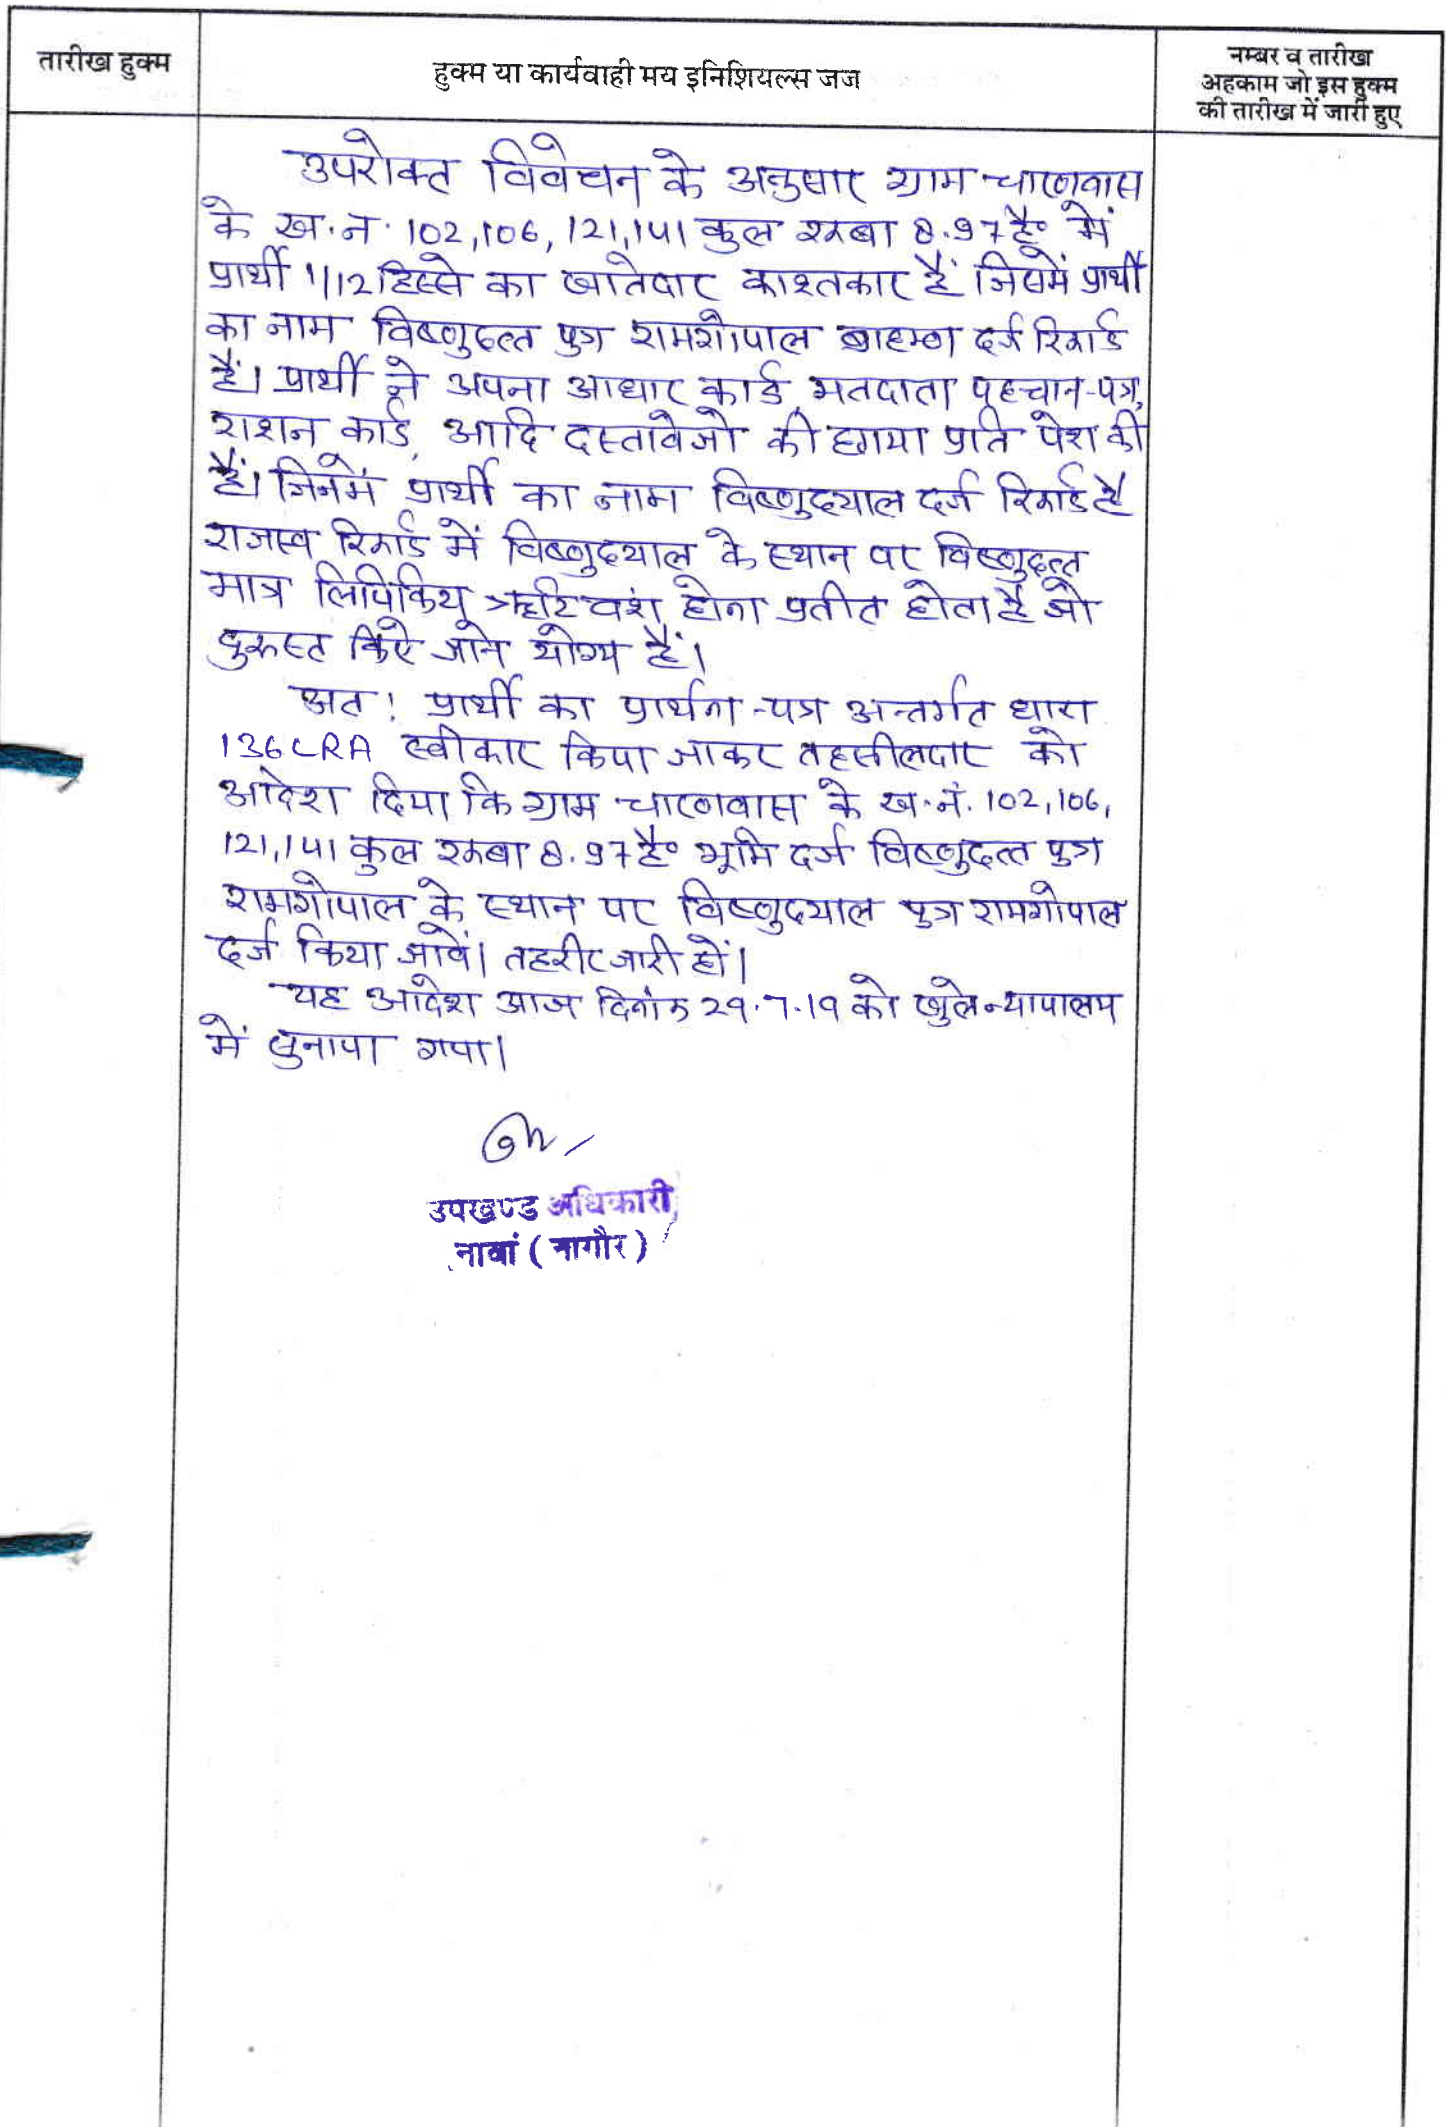 तारीख हुक्म
हुक्म या कार्यवाही मय इनिशियल्स जज
नम्बर व तारीख
अहकाम जो इस हुक्म
की तारीख में जारी हुए
उपरोक्त विवेचन के अनुसार ग्राम चारणवास
के ख.न. 102,106, 121,141 कुल रकबा 8.97है॰ में
प्रार्थी 1/12 हिस्से का खातेदार काश्तकार हैं जिसमें प्रार्थी
का नाम विष्णुदत्त पुत्र रामगोपाल ब्राहम्ण दर्ज रिकार्ड
हैं। प्रार्थी ने अपना आधार कार्ड, मतदाता पहचान-पत्र,
राशन कार्ड, आदि दस्तावेजो की छाया प्रति पेश की
हैं। जिनमें प्रार्थी का नाम विष्णुदयाल दर्ज रिकार्ड है
राजस्व रिकार्ड में विष्णुदयाल के स्थान पर विष्णुदत्त
मात्र लिपिकिय त्रुटि वंश होना प्रतीत होता है जो
दुरूस्त किऐ जाने योग्य हैं।
अत: प्रार्थी का प्रार्थना-पत्र अन्तर्गत धारा
136 LRA स्वीकार किया जाकर तहसीलदार को
आदेश दिया कि ग्राम चारणवास के ख.नं. 102,106,
121,141 कुल रकबा 8.97है॰ भूमि दर्ज विष्णुदत्त पुत्र
रामगोपाल के स्थान पर विष्णुदयाल पुत्र रामगोपाल
दर्ज किया जावें। तहरीर जारी हों।
यह आदेश आज दिनांक 29.7.19 को खुले न्यायालय
में सुनाया गया।
उपखण्ड अधिकारी,
नावां (नागौर)